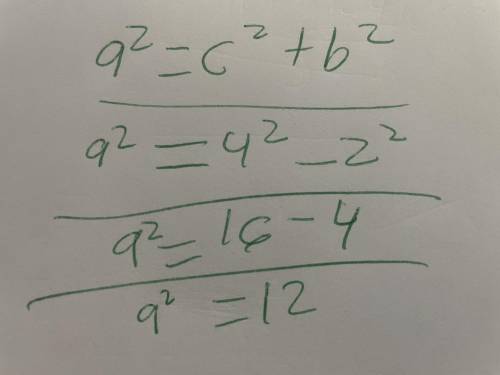 a² = c² + b²
a² = 4² - 2²
a² = 16 - 4
a² = 12